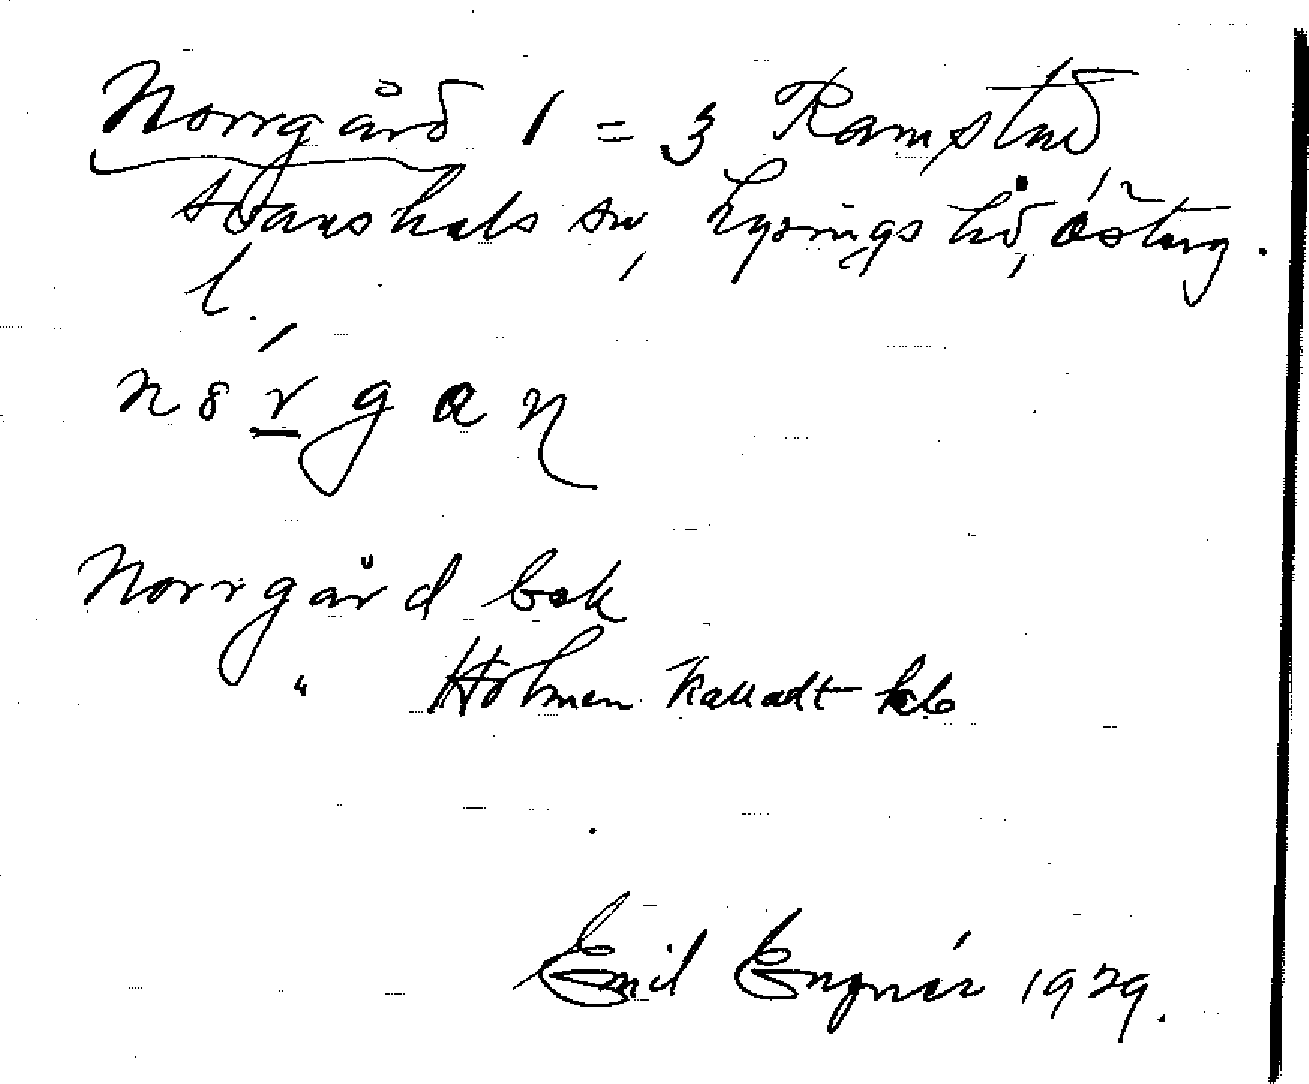 Norrgård 1 = 3 Ramstad
Svanshals sn, Lysings hd, Österg.
l.
n 8 r g a n
Norrgård bok
" Holmen kalladt
Emil Engnér 1929.